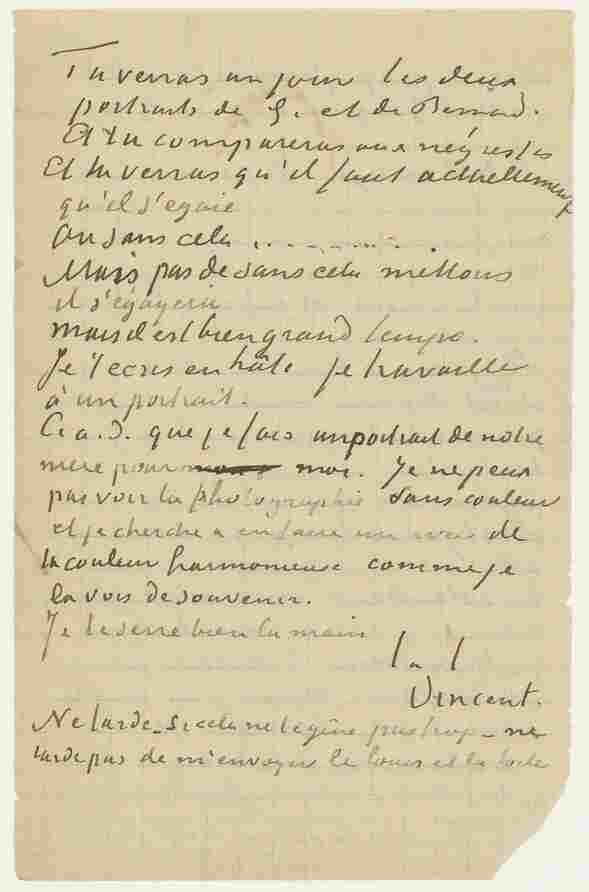 Tu verras un jour les deux
portraits de G. et de Bernard.
Et tu compareras aux négresses
Et tu verras qu'il faut actuellement
qu'il s'egaie
Ou sans cela ..........
Mais pas de sans cela mettons
il s'égayera
mais c'est bien grand temps.
Je t'ecris en hâte je travaille
à un portrait.
C. a. d. que je fais un portrait de notre
mère pour moi. Je ne peux
pas voir la photographie sans couleur
et je cherche à en faire un avec de
la couleur harmonieuse comme je
la vois de souvenir.
Je te serre bien la main
t. à t.
Vincent.
Ne tarde_ si cela ne te gêne pas trop_ ne
tarde pas de m'envoyer le louis et la toile